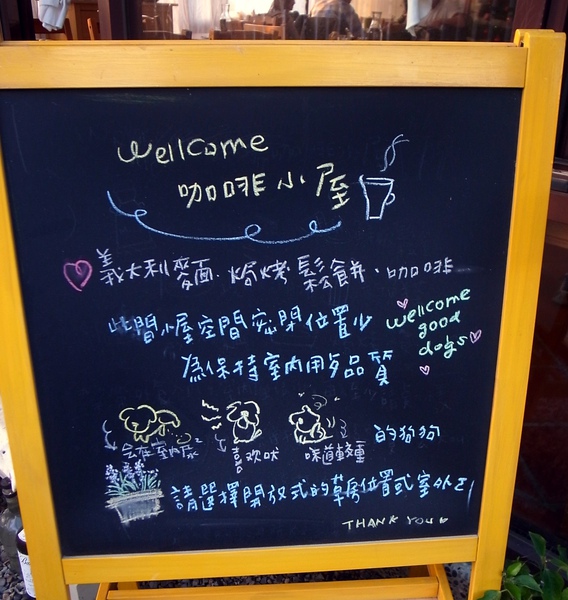 Wellcome
咖啡小屋
義大利麥面.焗烤鬆餅、咖啡
此間小屋空間密閉位置少
為保持室內用多品質
wellcome
good
dogs
會在室內尿尿
喜欢吠
味道較重
的狗狗
請選擇開放式的草房位置或室外区
THANK YOU